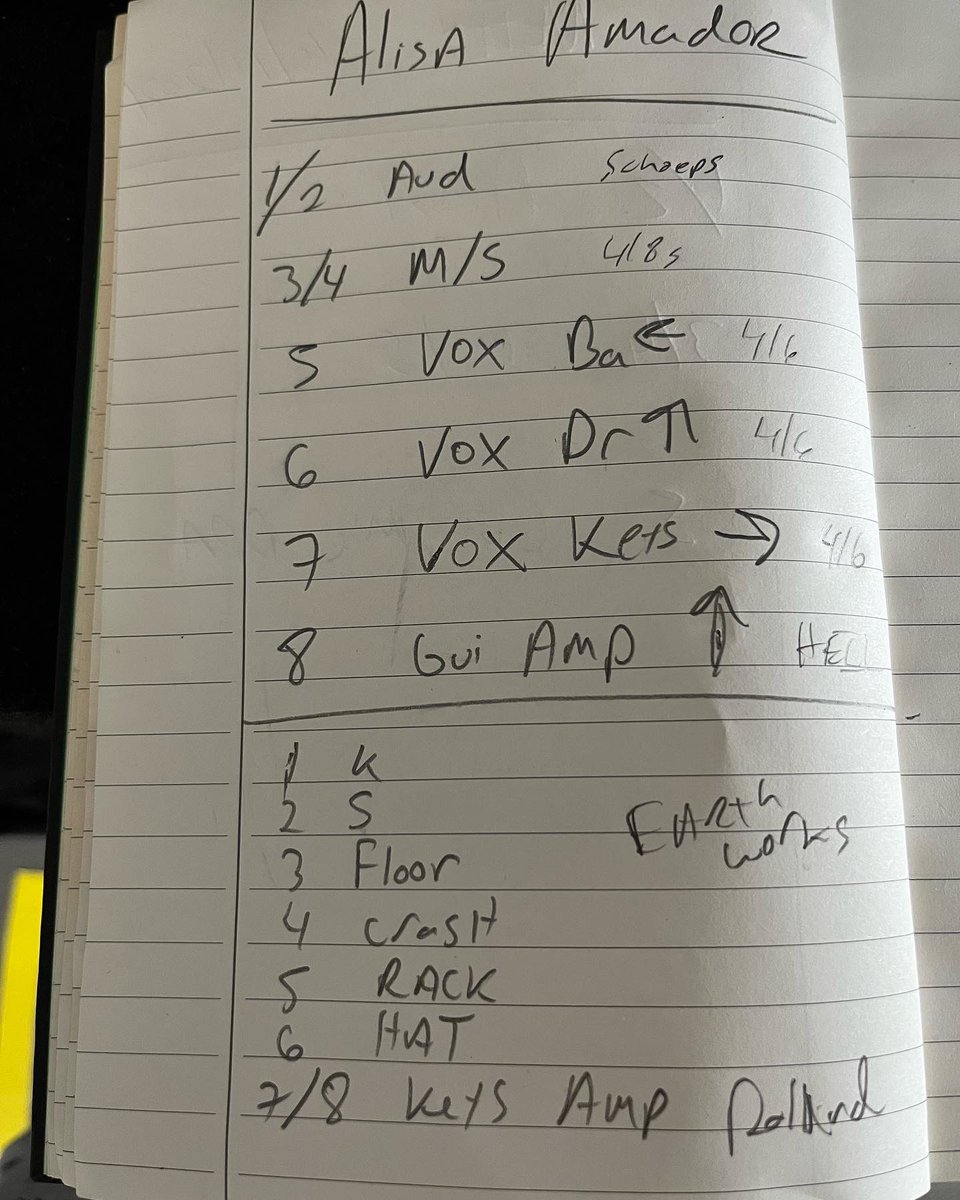 Alisa Amador
1/2 Aud Schoeps
3/4 M/S 418s
5 Vox Ba ← 416
6 Vox Dr ↑ 416
7 Vox Keys → 416
8 Gui Amp ↑
1 K
2 S
3 Floor
Earthworks
4 crash
5 RACK
6 HAT
7/8 Keys Amp Rolland